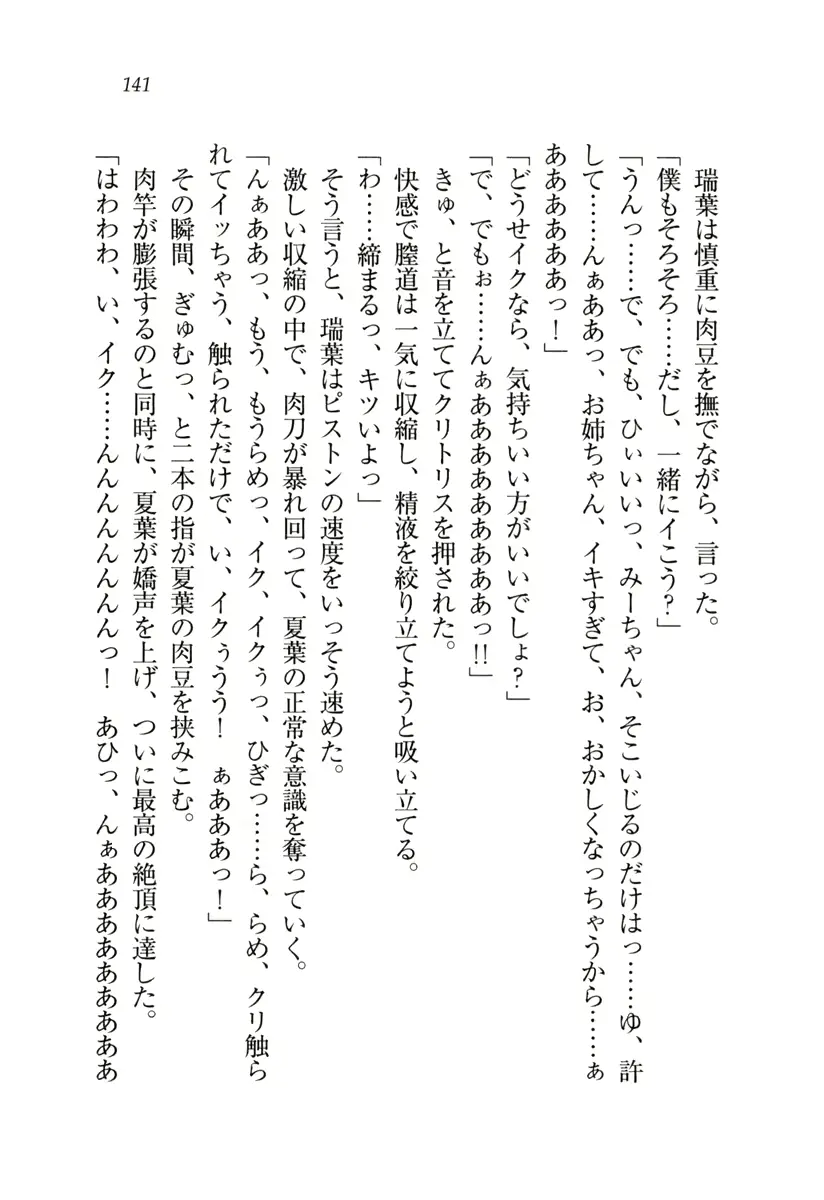 141
瑞葉は慎重に肉豆を撫でながら、言った。
「僕もそろそろ……だし、一緒にイこう?」
「うんっ……で、でも、ひぃいいっ、みーちゃん、そこいじるのだけはっ……ゆ、許
して……んぁああっ、お姉ちゃん、イキすぎて、お、おかしくなっちゃうから……ぁ
ああああああっ!」
「どうせイクなら、気持ちいい方がいいでしょ?」
「で、でもぉ……んぁあああああああああっ!!」
きゅ、と音を立ててクリトリスを押された。
快感で膣道は一気に収縮し、精液を絞り立てようと吸い立てる。
「わ……締まるっ、キツいよっ」
そう言うと、瑞葉はピストンの速度をいっそう速めた。
激しい収縮の中で、肉刀が暴れ回って、夏葉の正常な意識を奪っていく。
「んぁああっ、もう、もうらめっ、イク、イクぅっ、ひぎっ……ら、らめ、クリ触ら
れてイッちゃう、触られただけで、い、イクぅうう! ぁあああっ!」
その瞬間、ぎゅむっ、と二本の指が夏葉の肉豆を挟みこむ。
肉竿が膨張するのと同時に、夏葉が嬌声を上げ、ついに最高の絶頂に達した。
「はわわわ、い、イク……んんんんんんんんっ! あひっ、んぁあああああああああ